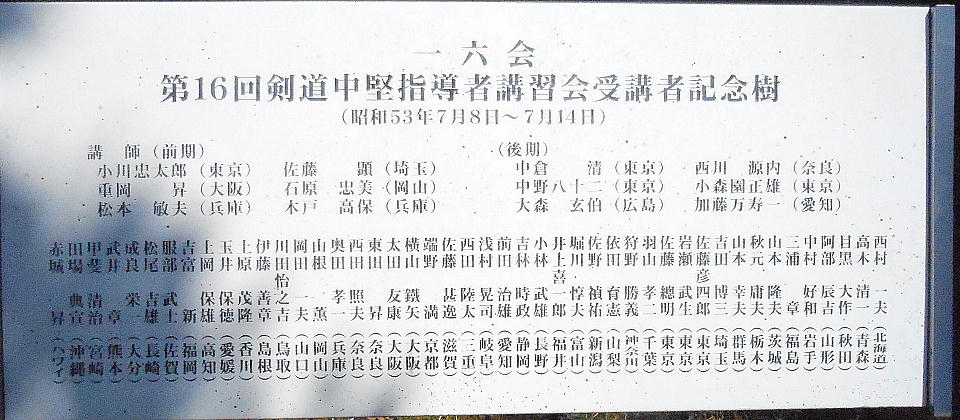 一六会
第16回剣道中堅指導者講習会受講者記念樹
(昭和53年7月8日〜7月14日)
講師(前期)
小川忠太郎(東京) 佐藤 顕(埼玉)
重岡 昇(大阪) 石原 忠美(岡山)
松本 敏夫(兵庫) 木戸 高保(兵庫)
(後期)
中倉 清(東京) 西川 源内(奈良)
中野八十二(東京) 小森園正雄(東京)
大森 玄伯(広島) 加藤万寿一(愛知)
西村 一夫(北海道)
高木 清一(青森)
目黒 大作(秋田)
阿部 辰吉(山形)
中村 好和(岩手)
三浦 章(福島)
山本 隆夫(茨城)
秋元 庸夫(栃木)
山本 幸夫(群馬)
吉田 博三(埼玉)
佐藤彦四郎(東京)
岩瀬 武生(東京)
佐藤 總明(東京)
羽山 孝二(千葉)
狩野 勝義(神奈川)
依田 育憲(山梨)
佐野 禎祐(新潟)
堀川 惇夫(富山)
井上喜一郎(福井)
小林 武雄(長野)
吉林 時政(静岡)
前田 治雄(愛知)
浅村 晃司(岐阜)
西田 陸太(三重)
佐藤 甚逸(滋賀)
端野 満(京都)
横山 鐵矢(大阪)
太田 友康(大阪)
東田 昇(奈良)
西田 照夫(奈良)
奥田 孝一(兵庫)
山根 薫(岡山)
岡田 一夫(山口)
川田怡之吉(鳥取)
伊藤 善章(島根)
上原 茂隆(香川)
玉井 保徳(愛媛)
上岡 保雄(高知)
吉富 新(福岡)
服部 武士(佐賀)
松尾 吉雄(長崎)
成良 栄一(大分)
武井 章(熊本)
甲斐 清治(宮崎)
田場 典宣(沖縄)
赤城 昇(ハワイ)